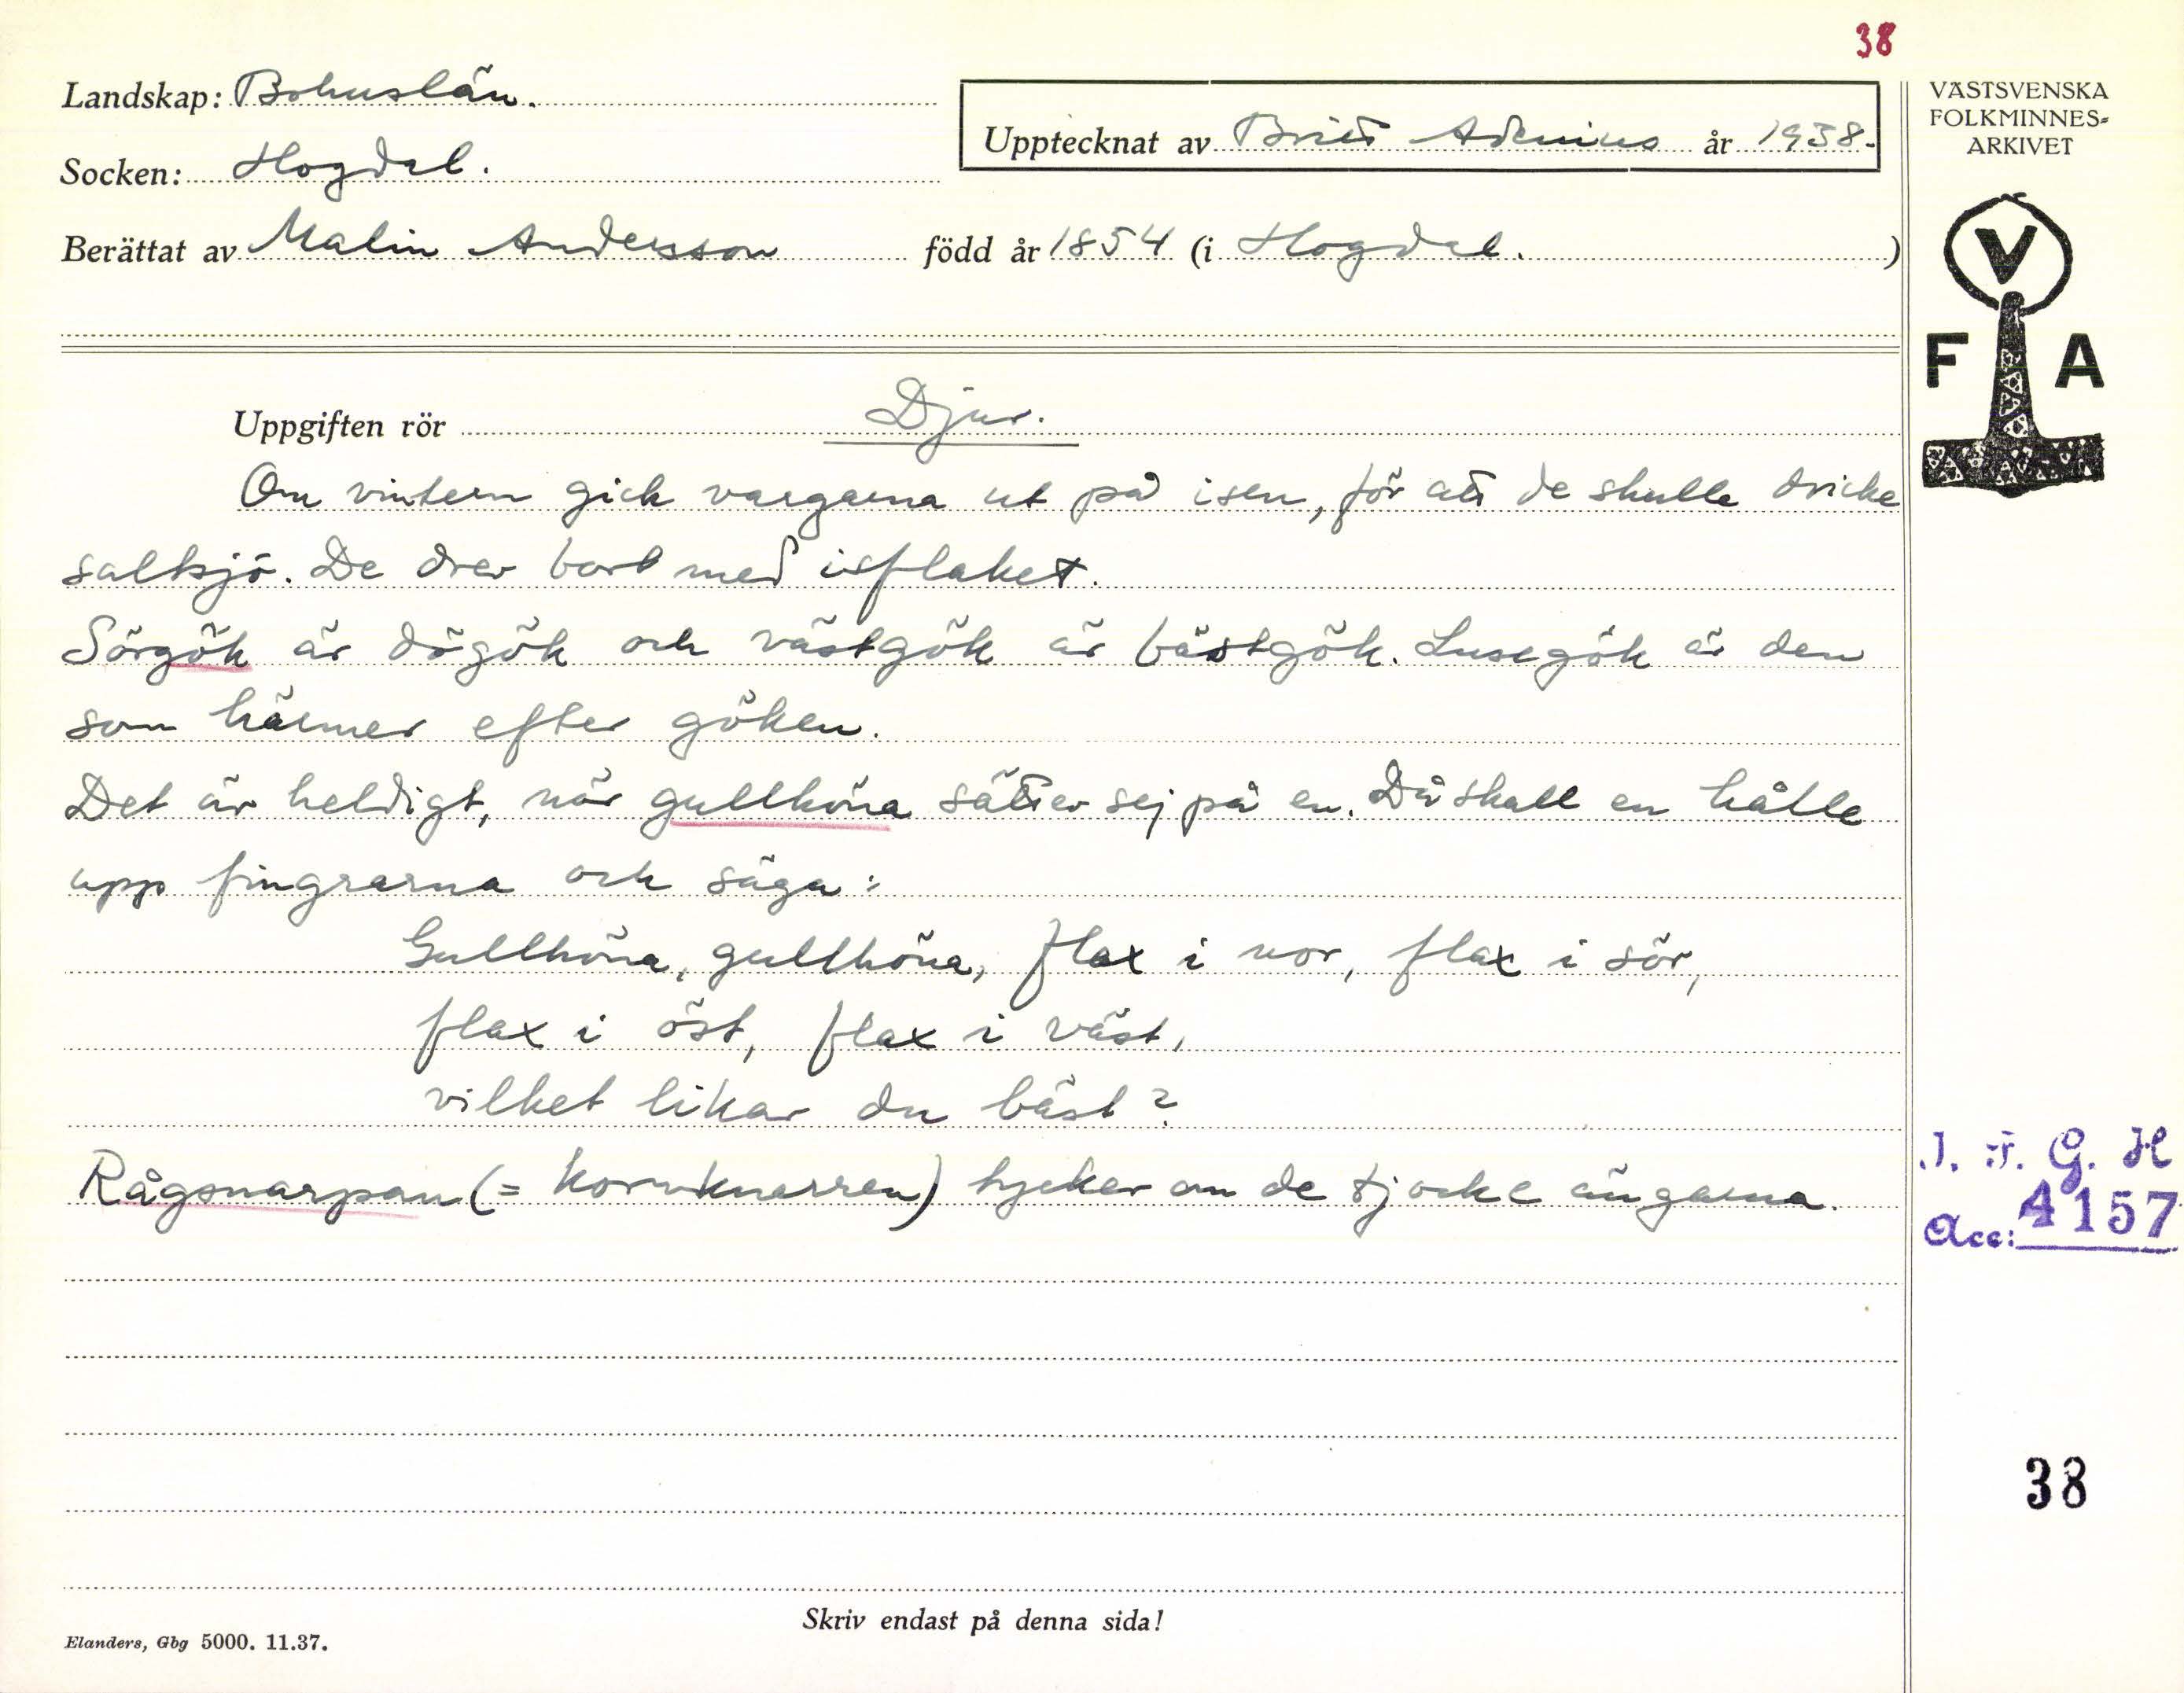 38
Landskap: Bohuslän.
Upptecknat av Britt Adenius år 1938.
VÄSTSVENSKA
FOLKMINNES-
ARKIVET
Socken: Hogdal.
Berättat av Malin Andersson född år 1854 (i Hogdal. )
V
F A
Uppgiften rör Djur.
Om vintern gick vargarna ut på isen, för att de skulle dricke
saltsjö. De drev bort med isflaket.
Sörgök är dögök och västgök är bästgök. Lusegök är den
som härmer efter göken.
Det är heldigt, när gullhöna sätter sej på en. Då skall en hålle
upp fingrarna och säga:
Gullhöna, gullhöna, flax i nor, flax i sör,
flax i öst, flax i väst,
vilket likar du bäst?
Rågsnarpan (= kornknarren) tycker om de tjocke ängarna.
I. F. G. H
Acc: 4157
38
Skriv endast på denna sida!
Elanders, Gbg 5000. 11.37.